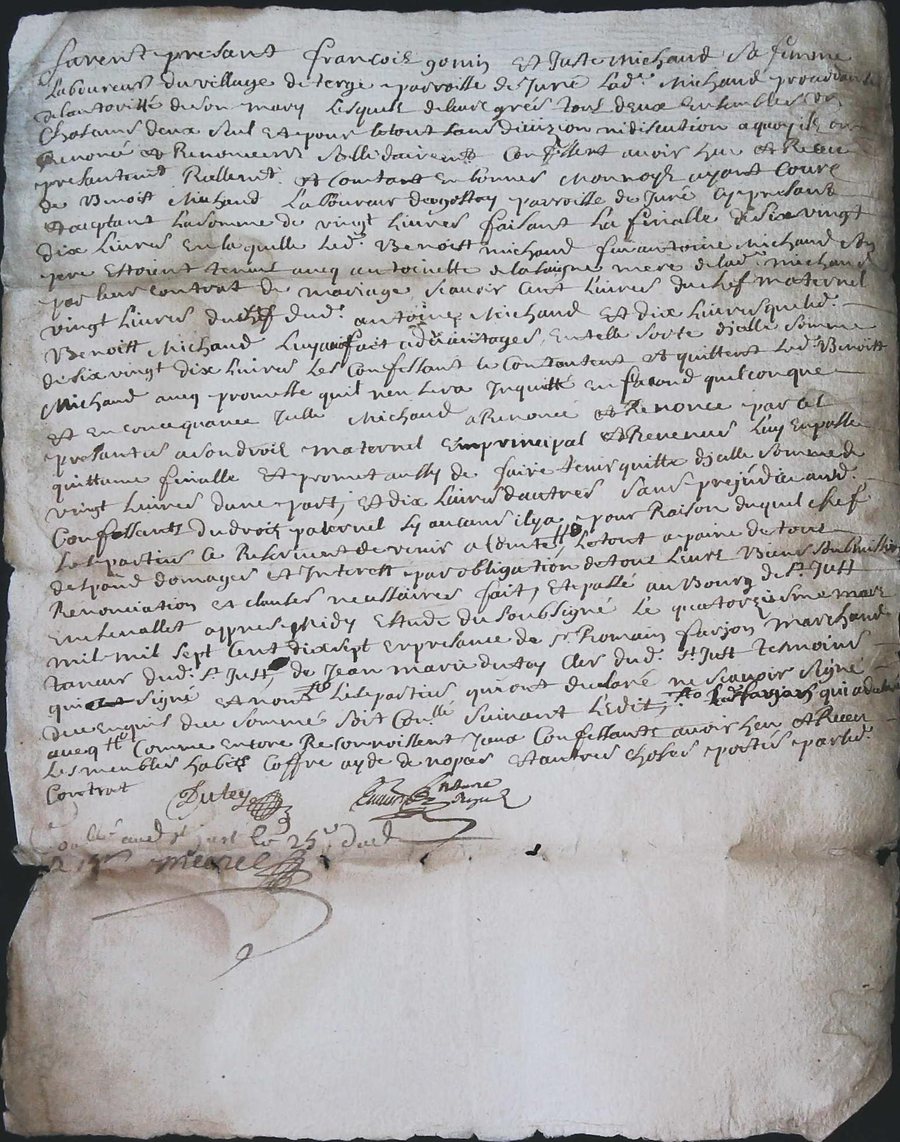 furent presant françois gonin Et Juste Michaud Sa femme
Laboureurs du village de terge parroisse de Juré Lad.e Michaud procedante
de lautoritté de son mary Lesquels de leurs grés tous deux Ensembles
Chascuns deux seul Et pour letout sans division ni discution a quoy ils ont
Renoncé et Renoncent sollidairement Confessent avoir heu et Receu
presantement Reellement et Contant En bonnes Monnoye ayant Cours
de Benoist Michaud Laboureur parroisse de Juré Cy presant
et aceptant La somme de vingt Livres faisant La finalle de six vingt
dix Livres En laquelle Led. Benoist michaud feu antoine Michaud son
pere Estoient tenus avec antoinette mere de lad. michaud
par leur contrat de mariage scavoir Cent Livres du chef maternel
vingt Livres du chef dud. antoine Michaud Et dix Livres que led.
Benoist Michaud Luy auroit fait Entelle sorte dicelle somme
de six vingt dix Livres Les Confessant se Contentent et quittent Led. Benoist
Michaud avec promesse quil nen sera Inquietté En facond quelconque
Et En concequance Juste Michaud a Renoncé et Renonce par Ces
presantes a son droit maternel En principal et Revenus Luy En passe
quittance finalle Et promet aussy de faire tenir quitte dicelle somme de
vingt Livres dune part, Et dix Livres dautres sans prejudice aud.
Confessants du droit paternel sy aucuns il y a pour Raison duquel chef
Les parties Ce Reservent de venir a Compte, Le tout a paine de tous
despand domages et Interest par obligation de tous Leurs Biens soubmissions
Renonciation et clauses necessaires fait, Et passé au Bourg de St. Just
appres Midy Estude du soubsigné Le quatorziesme mars
mil mil sept Cent dix sept En presance de Sr. Romain farjon Marchand
taneur dud. St. Just, de Jean marie dutey Cler dud. St. Just tesmoins
qui ont signé Et non les parties qui ont declaré ne scavoir signé
de ce Enquis et sommé soit Con.llé suivant Ledit, led. farjon qui a declaré
avecq Comme Encore Reconnoissent Iceux Confessants avoir heu et Receu
Les meubles habits Coffre ayde de nopces et autres choses portés par led.
Contrat
Dutey
Notaire
Royal
Con.llé aud. st just le 25e dud.